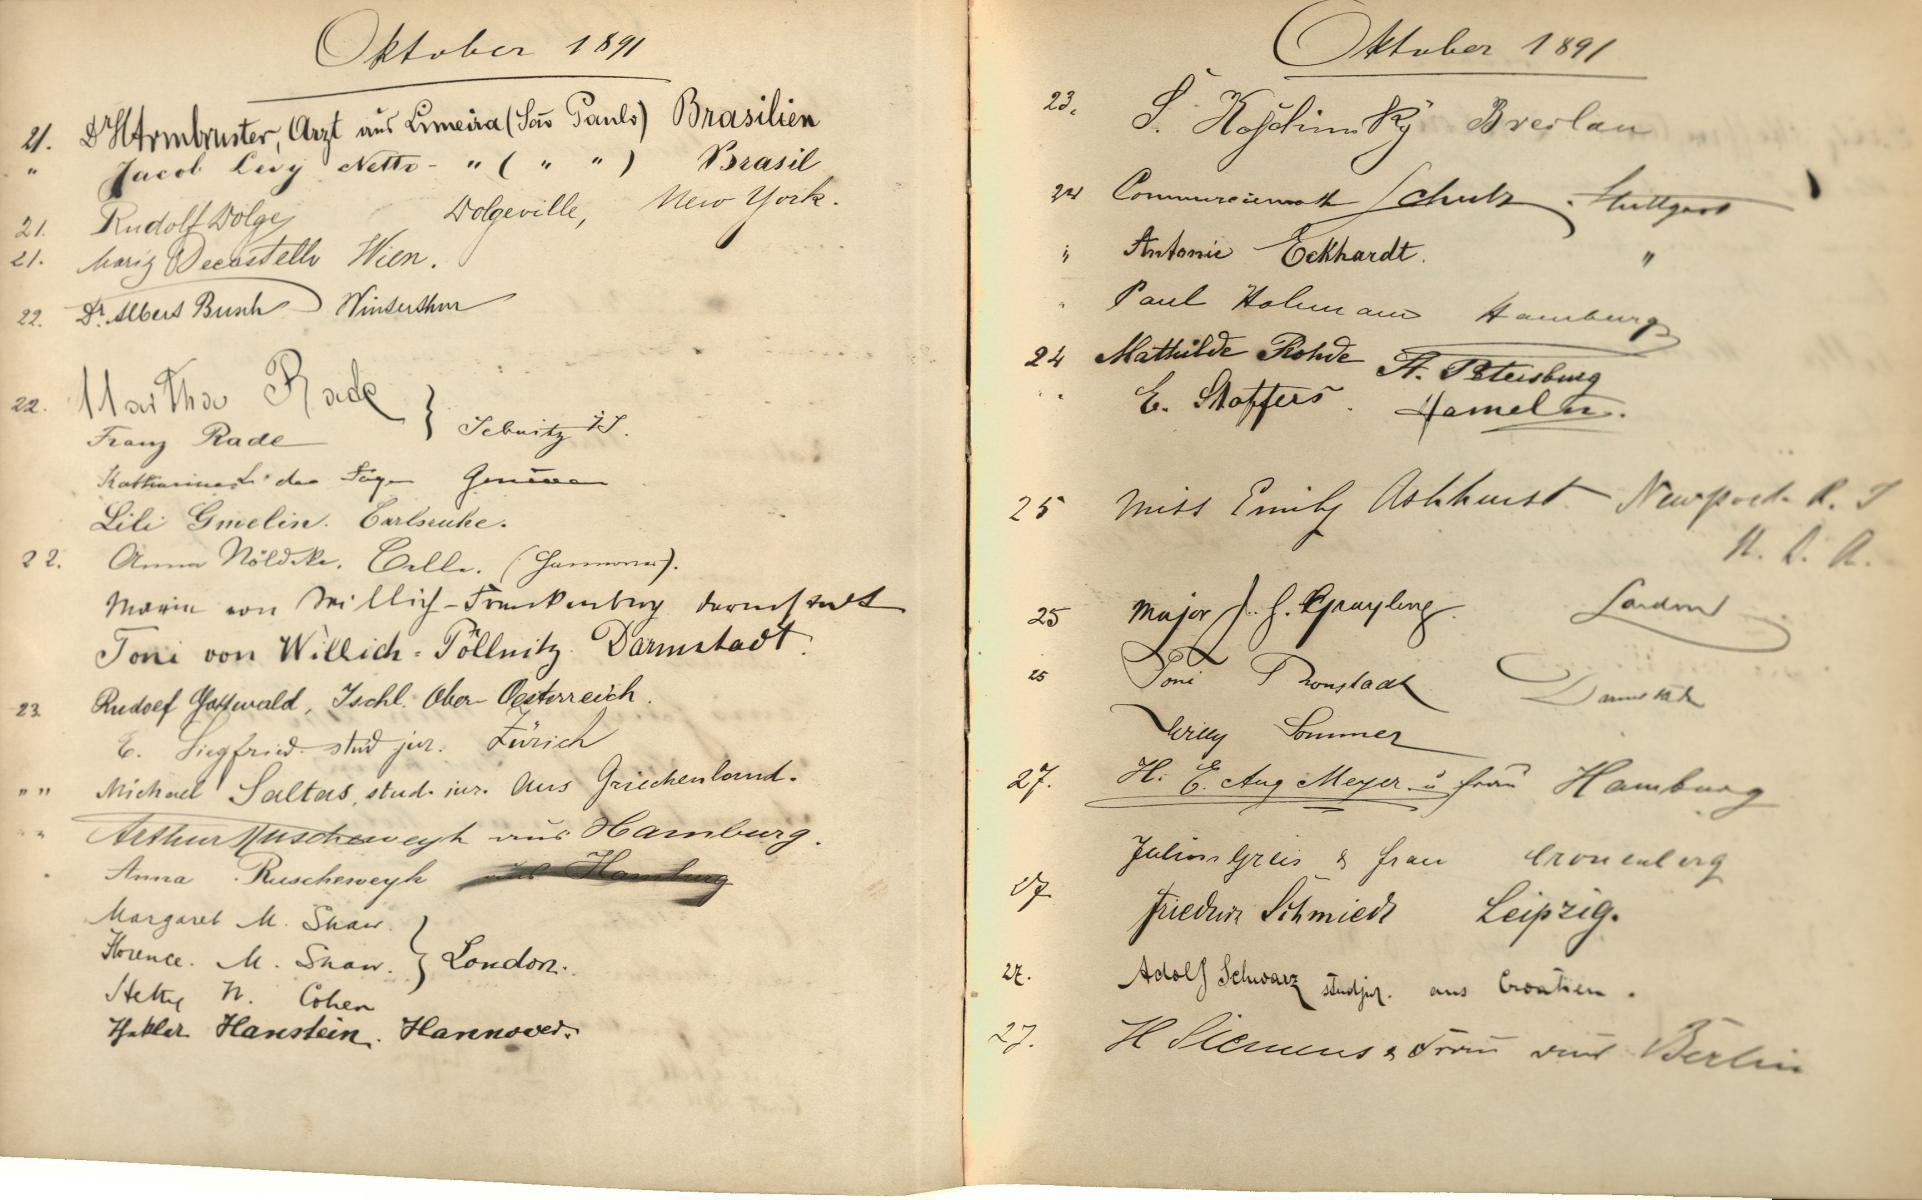 Oktober 1891
21. Dr H Armbruster, Arzt aus Limeira (São Paulo) Brasilien
" Jacob Levy Netto - " ( " " ) Brasil
21. Rudolf Dolge Dolgeville, New York.
21. Decastello Wien.
22. Dr. Albert Busch Winterthur
22. Martha Rade
Franz Rade } Sebnitz i/S.
Katharina
Lili Gmelin. Carlsruhe.
22. Anna Nöldeke. Celle. (Hannover).
von Willich-Frankenberg Darmstadt
Toni von Willich-Pöllnitz Darmstadt.
23. Rudolf Gottwald, Ischl. Ober-Oesterreich.
E. Siegfried stud jur. Zürich
" " Michael Saltas, stud. iur. Aus Griechenland.
" " Arthur Ruscheweyh aus Hamburg.
" Anna Ruscheweyh aus Hamburg
Margaret M. Shaw.
Florence. M. Shaw. } London.
Hetty N. Cohen
Hanstein. Hannover.
Oktober 1891
23. S. Breslau
24 Commercienrath Stuttgart
" Antonie Eckhardt. "
" Paul Hamburg
24 Mathilde Rohde St. Petersburg
" E. Stoffers. Hameln.
25 Miss Emily Ashhurst Newport R. I
U. S. A.
25 Major J. G. Grayling. London
25 Toni Darmstadt
Willy Sommer
27. H. E. Aug Meyer u frau Hamburg
& frau Cronenberg
27 Schmidt Leipzig.
27. Adolf Schwarz stud jur. aus Croatien.
27. H Siemens & Frau aus Berlin